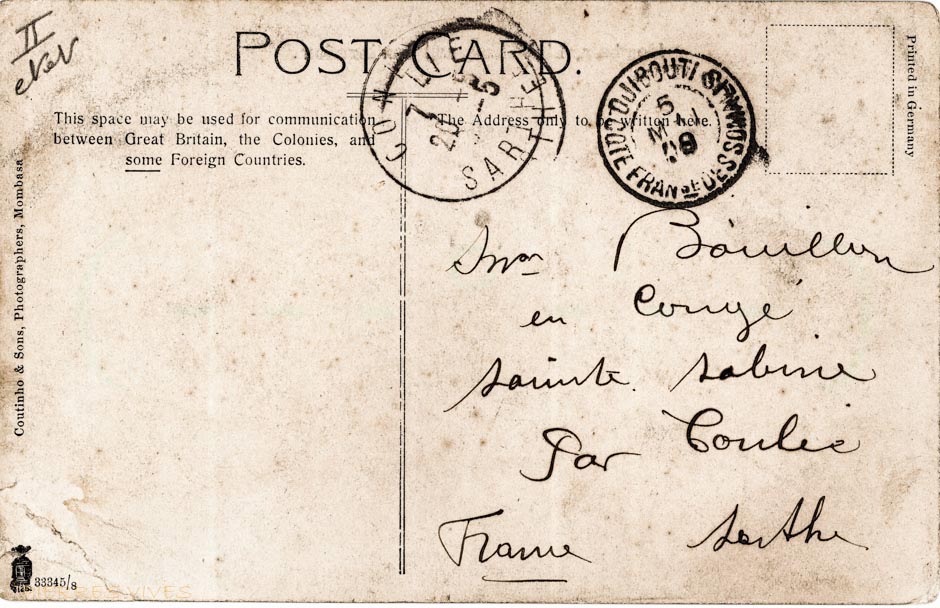 II
POST CARD.
This space may be used for communication
between Great Britain, the Colonies, and
some Foreign Countries.
The Address only to be written here.
Printed in Germany
CONLIE
7
20 -5
SARTHE
DJIBOUTI
5
MAI
09
COTE FRANSE DES SOMALIS
Coutinho & Sons, Photographers, Mombasa
Bouillon
en Congé
Sainte Sabine
par Conlie
France Sarthe
33345/8